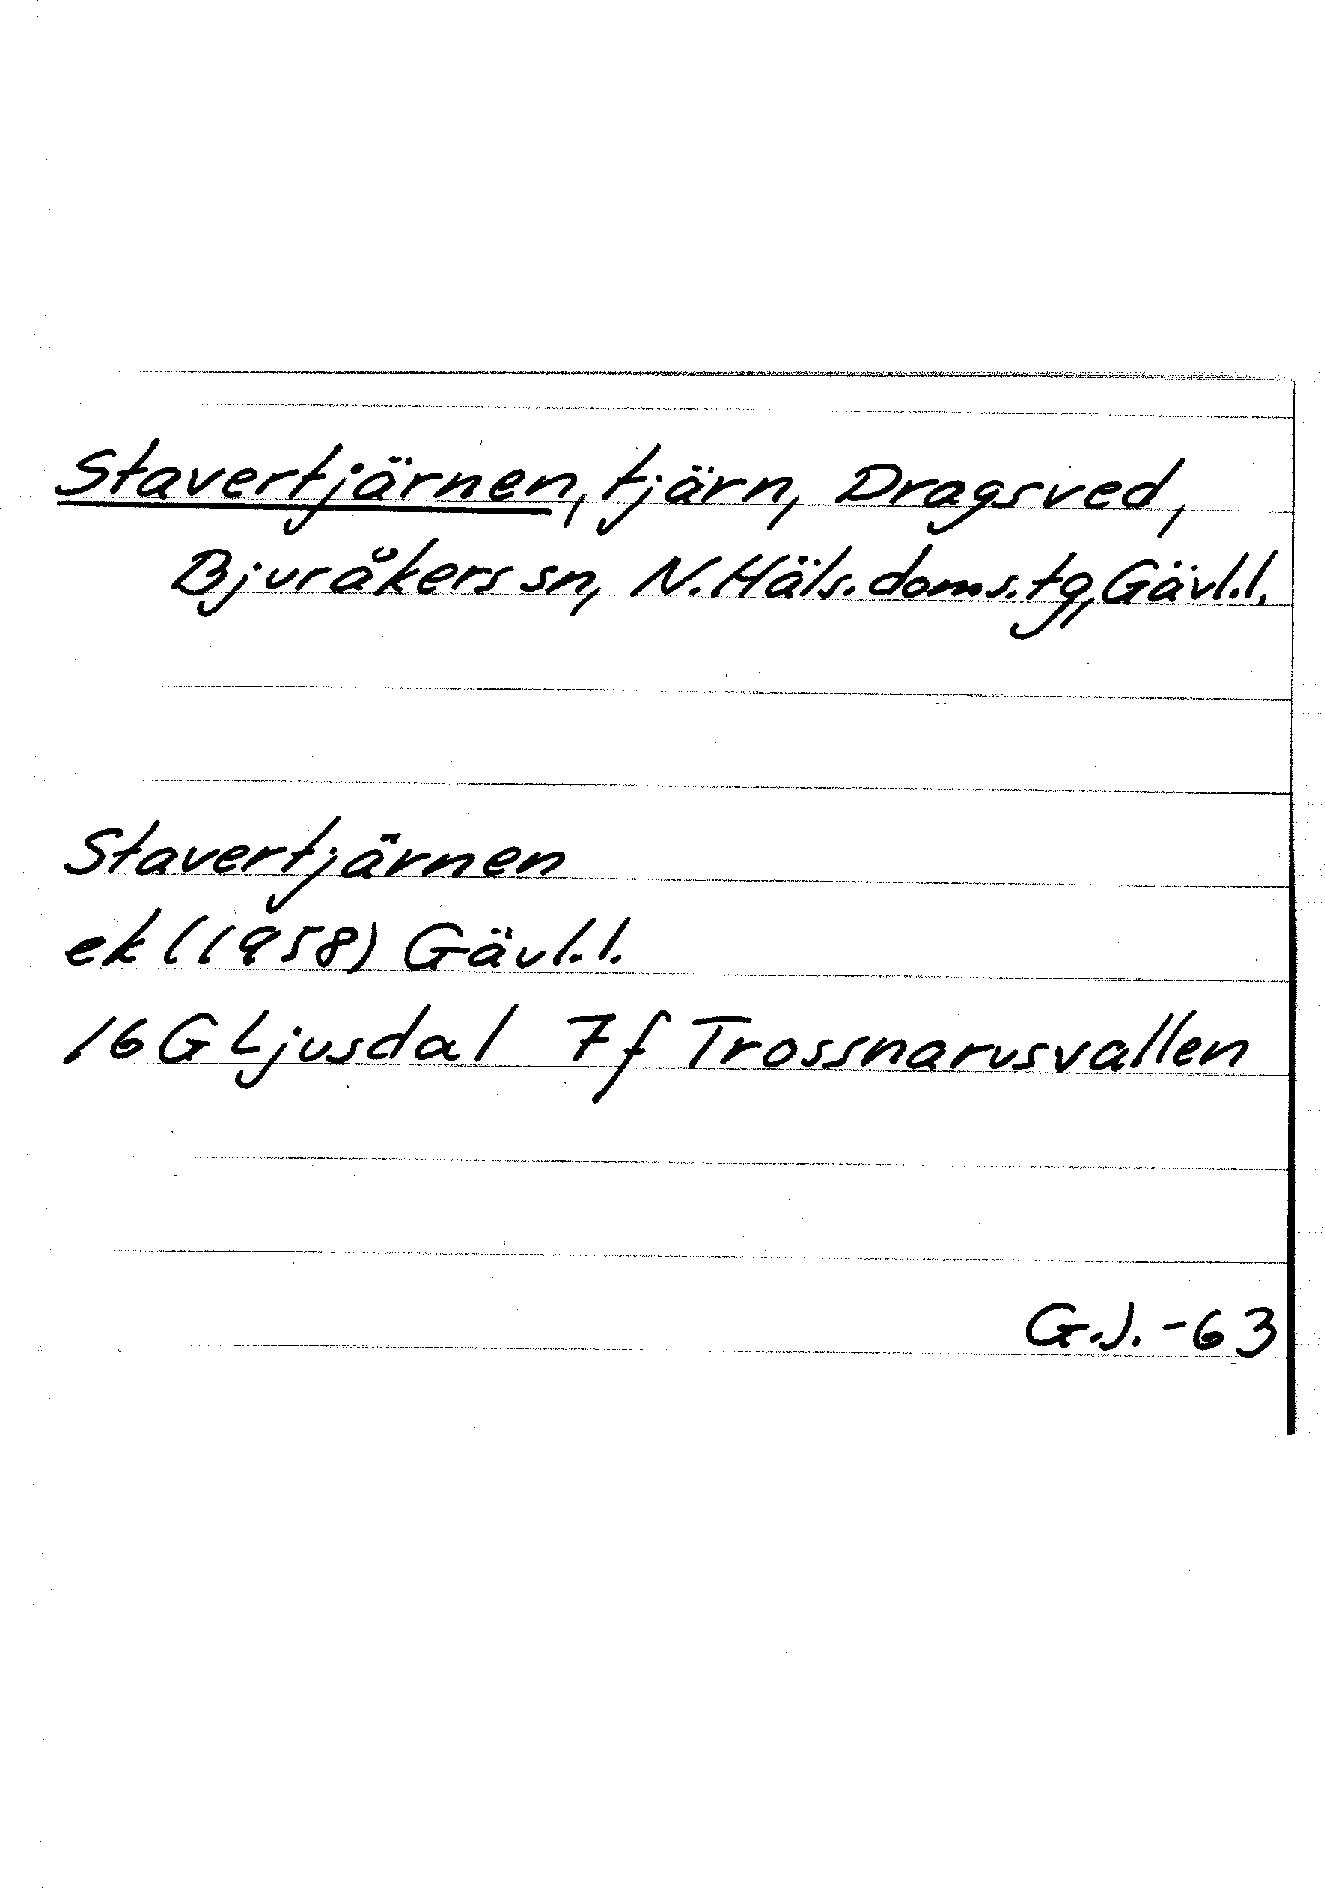 Stavertjärnen, tjärn, Dragsved,
Bjuråkers sn, N. Häls. doms. tg, Gävl. l.
Stavertjärnen
ek (1958) Gävl. l.
16 G Ljusdal 7f Trossnarusvallen
G.J. -63